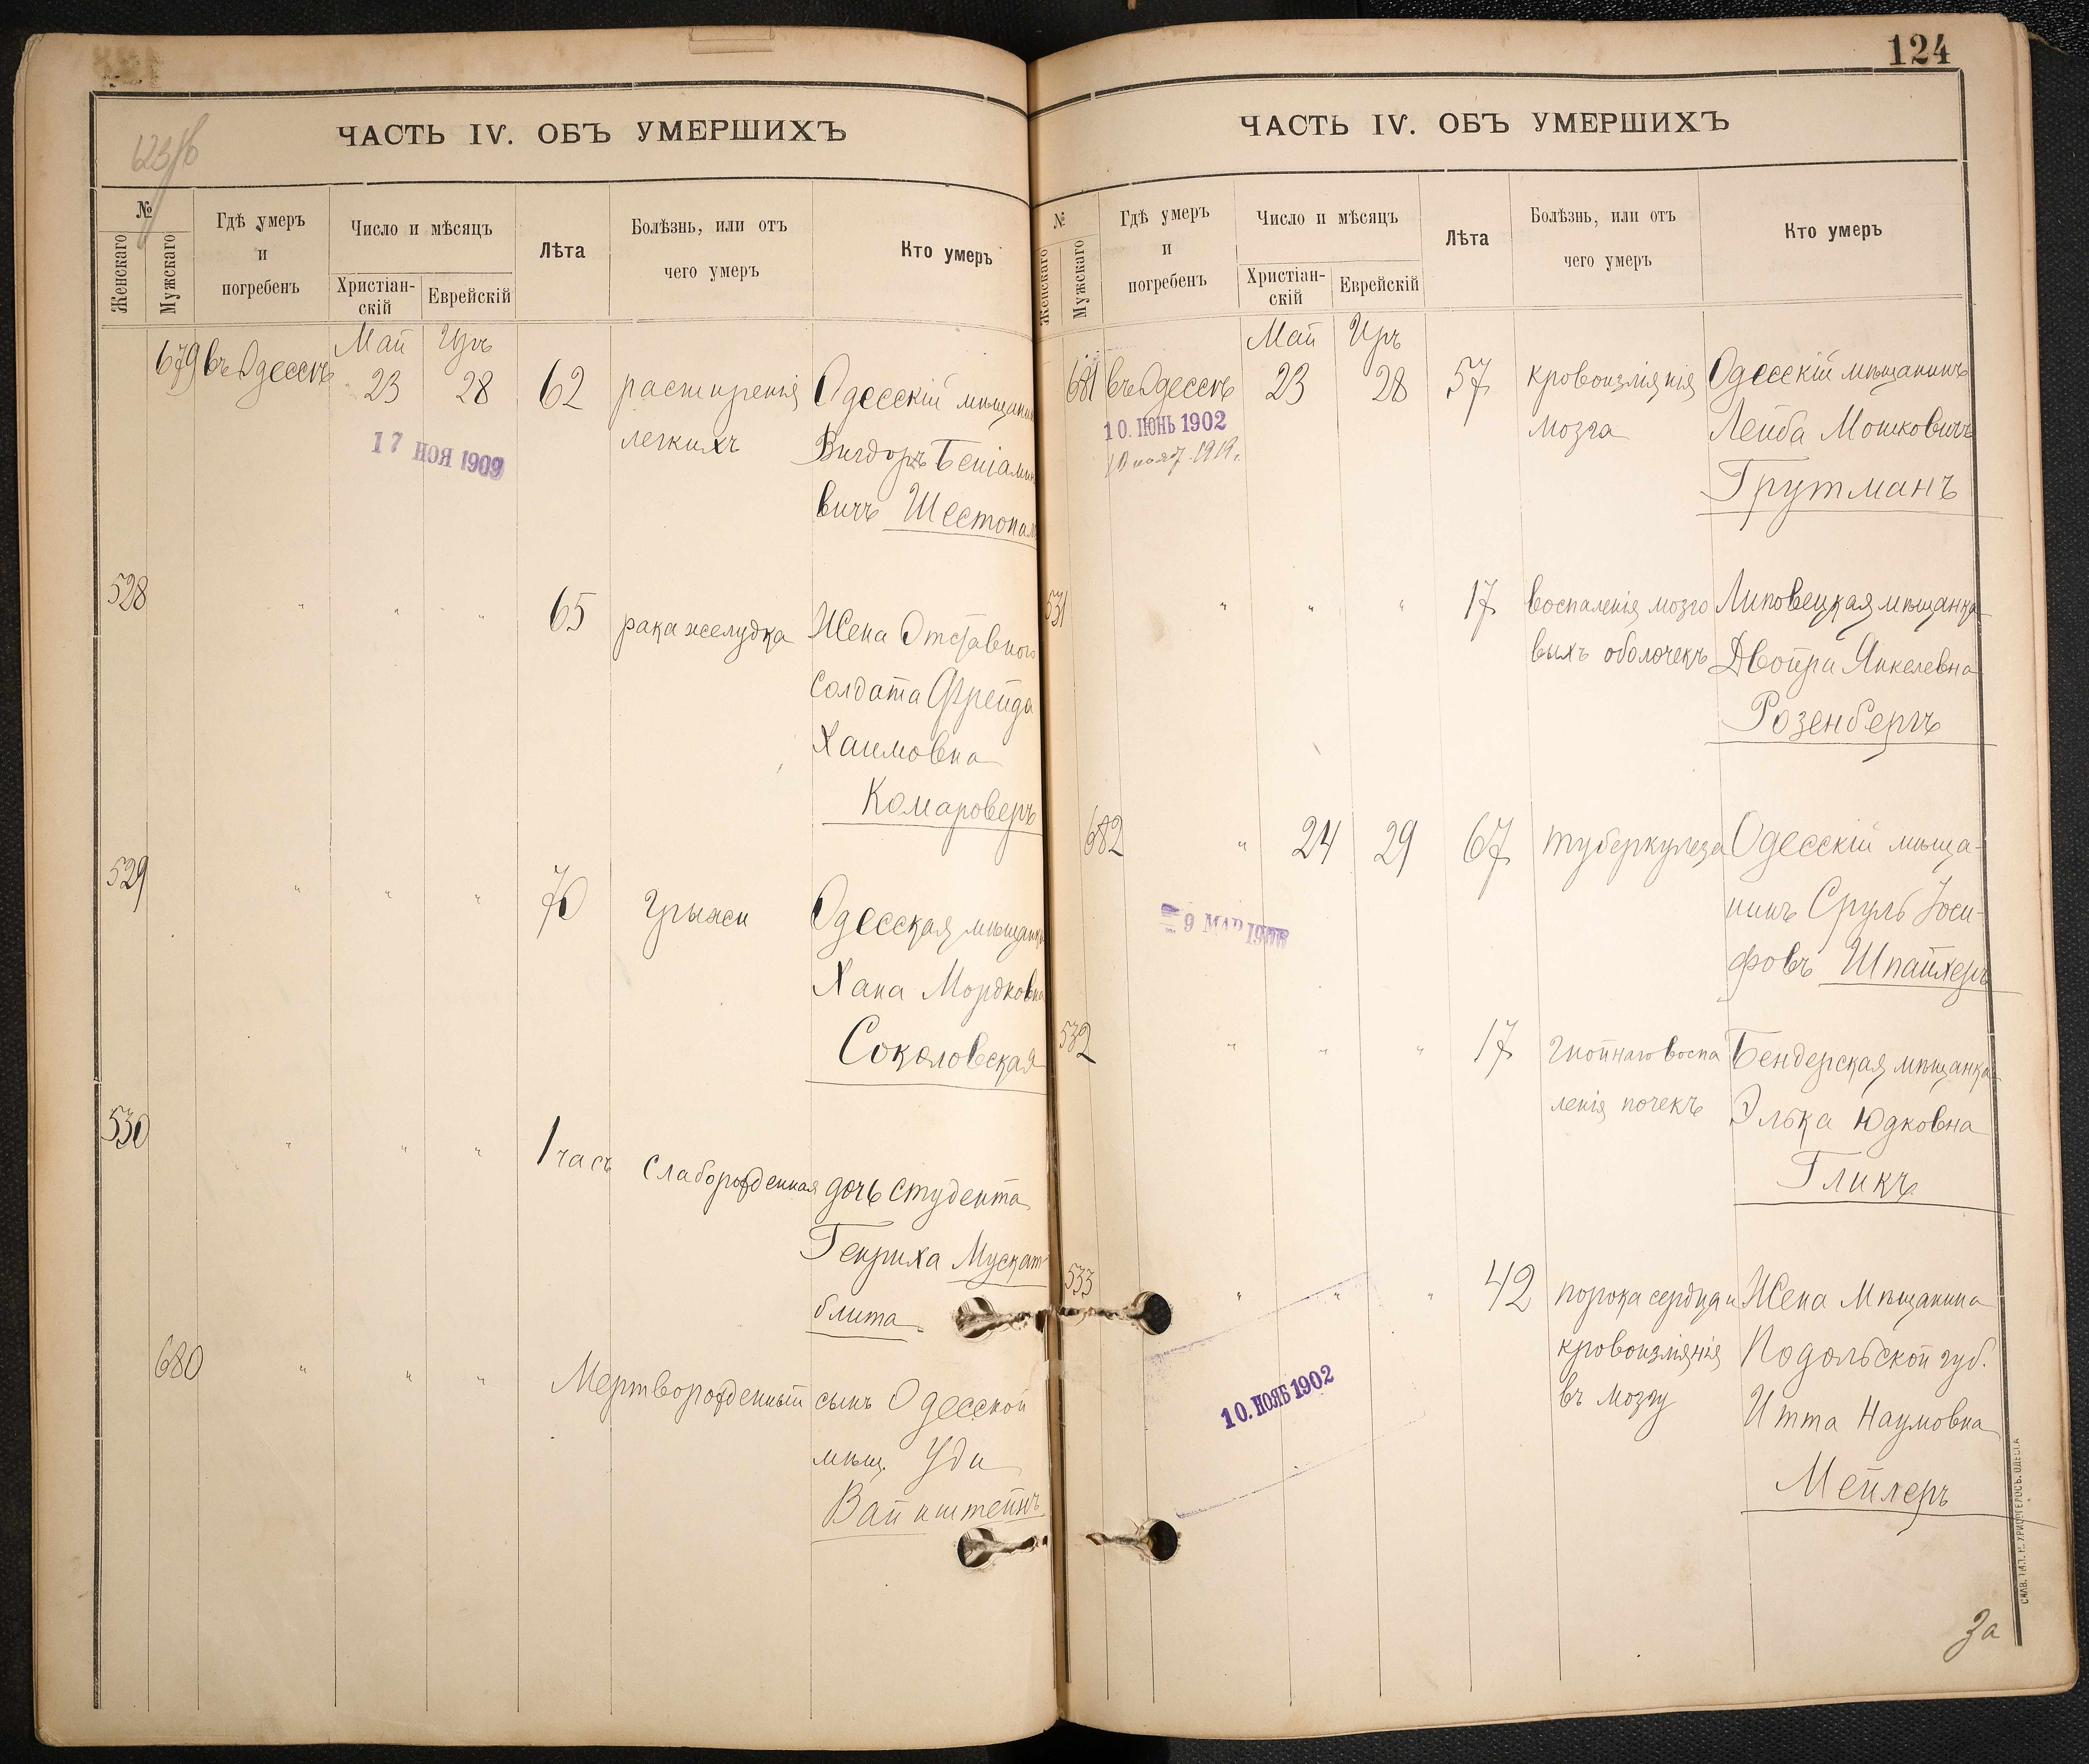 123/б
ЧАСТЬ IV. ОБЪ УМЕРШИХЪ
№
Женскаго
Мужскаго
Гдѣ умеръ
и
погребенъ
Число и мѣсяцъ
Христіан-
скій
Еврейскій
Лѣта
Болѣзнь, или отъ
чего умеръ
Кто умеръ
Май Иръ
679 въ Одессѣ 23 28 62 расширенія Одесскій мѣщанин
легкихъ Вигдоръ Беніамино
17 НОЯ 1909
вичъ Шестопал
528 " " " 65 рака желудка Жена Отставного
солдата Фрейда
Хаимовна
Комароверъ
529 " " " 70 Грыжи Одесская мѣщанка
Хана Мордковна
Соколовская
530 " " " 1 часъ Слаборожденная дочь студента
Генриха Мускат
блита
680 " " " Мертворожденный сынъ Одесской
мѣщ. Уди
Вайнштейнъ
124
ЧАСТЬ IV. ОБЪ УМЕРШИХЪ
№
Женскаго
Мужскаго
Гдѣ умеръ
и
погребенъ
Число и мѣсяцъ
Христіан-
скій
Еврейскій
Лѣта
Болѣзнь, или отъ
чего умеръ
Кто умеръ
Май Иръ
681 въ Одессѣ 23 28 57 кровоизліянія Одесскій мѣщанинъ
10. ІЮНЬ 1902
мозга Лейба Мошковичъ
1919 г.
Грутманъ
531 " " " 17 воспаленія мозго Липовецкая мѣщанка
выхъ оболочекъ Двойра Янкелевна
Розенбергъ
682 " 24 29 67 туберкулеза Одесскій мѣща-
нинъ Сруль Іоси-
9 МАР
фовъ Шпайхеръ
532 " " " 17 гнойнаго воспа Бендерская мѣщанка
ленія почекъ Элька Юдковна
Гликъ
533 " " " 42 порока сердца и Жена Мѣщанина
кровоизліянія Подольской губ.
въ мозгу Итта Наумовна
10. НОЯБ 1902
Мейлеръ
За
ОДЕССА